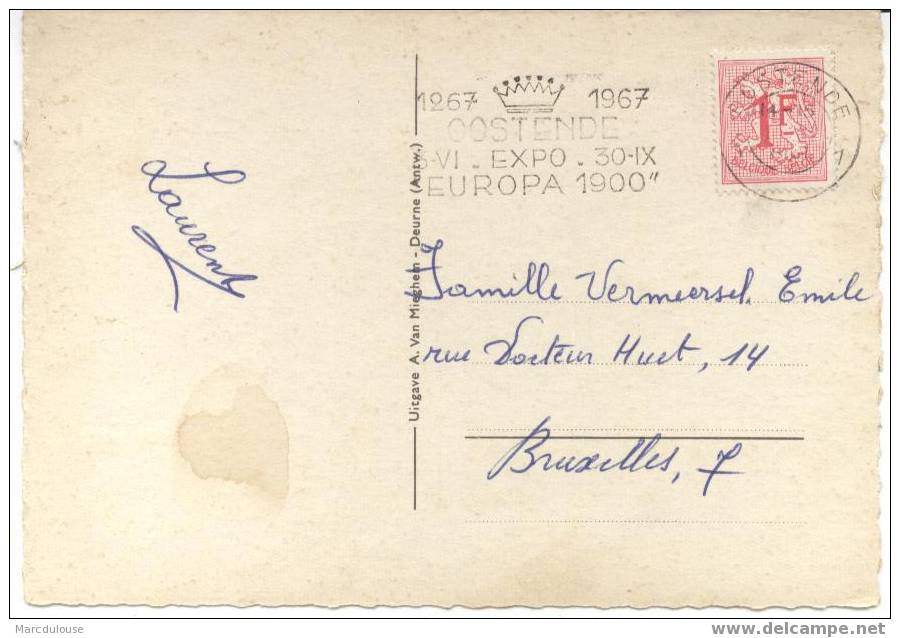 Laurent
1267 1967
OOSTENDE
-VI . EXPO . 30-IX
EUROPA 1900"
1F
OOSTENDE
1
Uitgave A. Van Mieghem - Deurne (Antw.)
Famille Vermeersch Emile
rue Docteur Huet, 14
Bruxelles, 7
Marcdulouse
www.delcampe.net